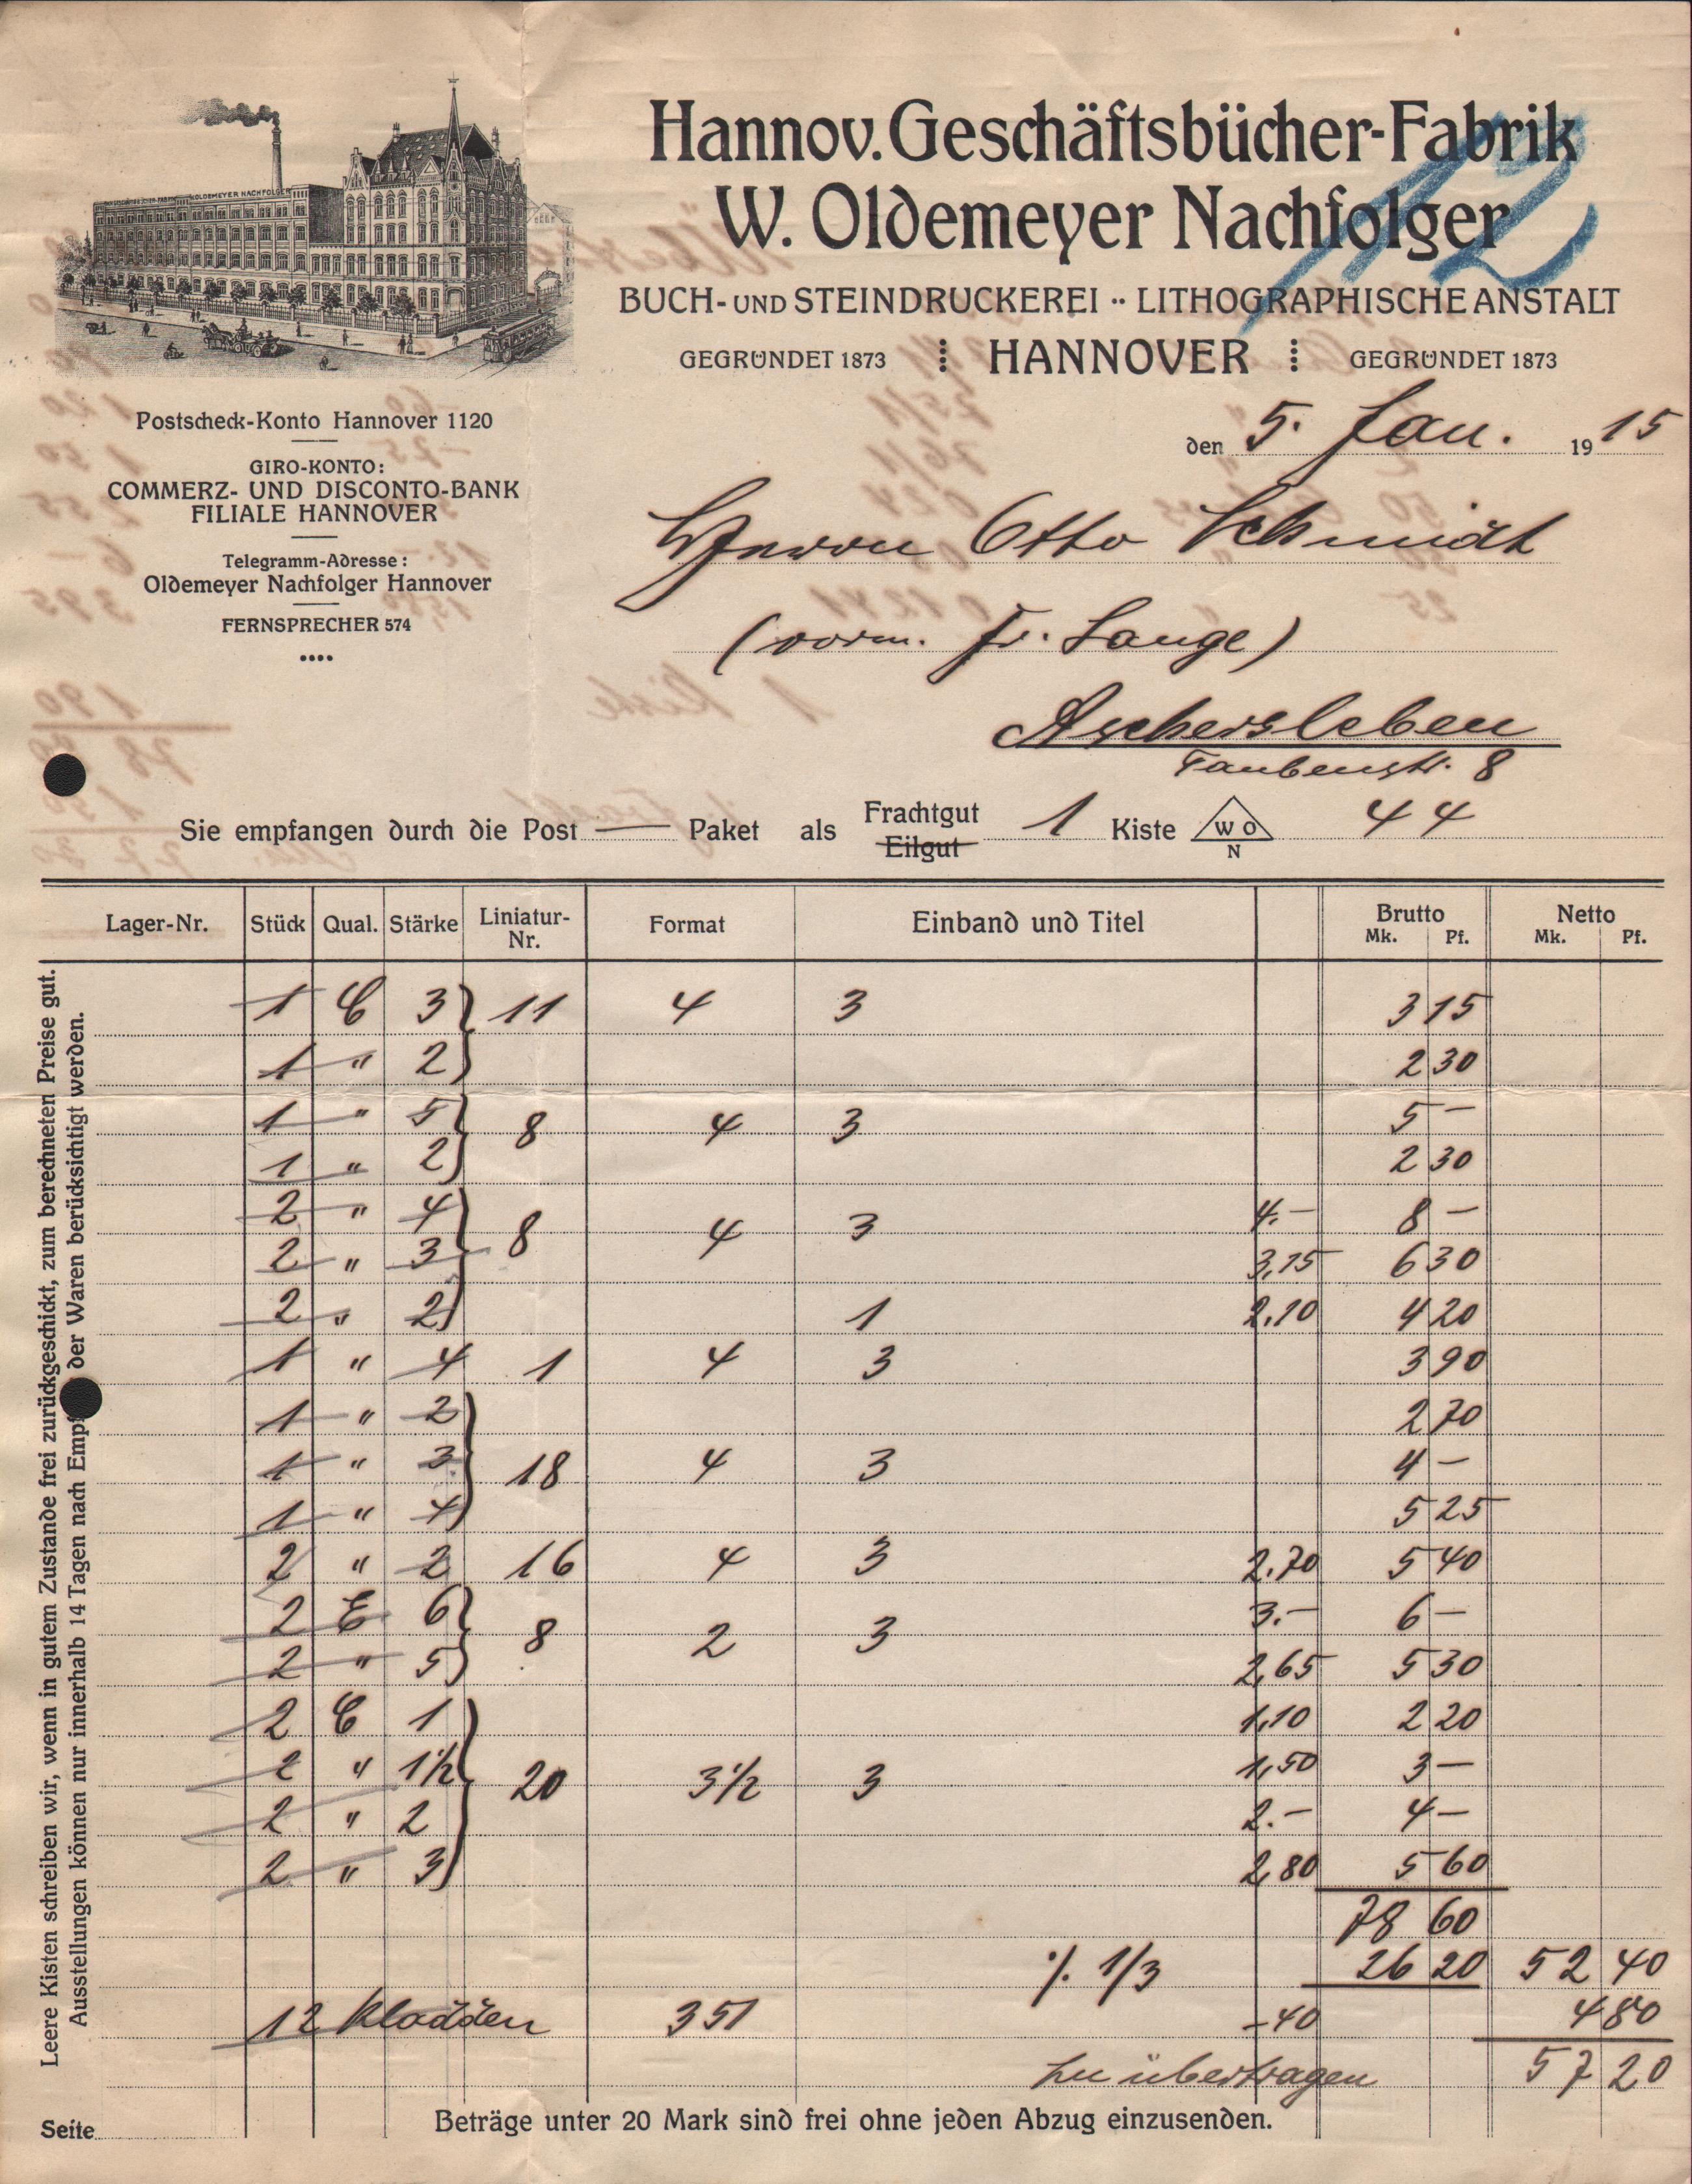 Hannov. Geschäftsbücher-Fabrik
W. Oldemeyer Nachfolger
12
BUCH- UND STEINDRUCKEREI ·· LITHOGRAPHISCHE ANSTALT
GEGRÜNDET 1873 HANNOVER GEGRÜNDET 1873
OLDEMEYER NACHFOLGER
Postscheck-Konto Hannover 1120
GIRO-KONTO:
COMMERZ- UND DISCONTO-BANK
FILIALE HANNOVER
Telegramm-Adresse:
Oldemeyer Nachfolger Hannover
FERNSPRECHER 574
den 5. Jan. 1915
Herrn Otto Schmidt
(vorm. Fr. Lange)
Aschersleben
Taubenstr. 8
Sie empfangen durch die Post — Paket als Frachtgut Eilgut 1 Kiste W O N 44
Lager-Nr. Stück Qual. Stärke Liniatur-Nr. Format Einband und Titel Brutto Mk. Pf. Netto Mk. Pf.
1 C 3 11 4 3 3 15
1 " 2 2 30
1 " 5 8 4 3 5 —
1 " 2 2 30
2 " 4 8 4 3 4.— 8 —
2 " 3 3,15 6 30
2 " 2 1 2.10 4 20
1 " 4 1 4 3 3 90
1 " 2 2 70
1 " 3 18 4 3 4 —
1 " 4 5 25
2 " 2 16 4 3 2.70 5 40
2 E 6 8 2 3 3.— 6 —
2 " 5 2,65 5 30
2 C 1 1,10 2 20
2 " 1½ 20 3½ 3 1,50 3 —
2 " 2 2.— 4 —
2 " 3 2,80 5 60
78 60
./. 1/3 26 20 52 40
12 Kladden 351 -40 4 80
zu übertragen 57 20
Leere Kisten schreiben wir, wenn in gutem Zustande frei zurückgeschickt, zum berechneten Preise gut.
Ausstellungen können nur innerhalb 14 Tagen nach Empf der Waren berücksichtigt werden.
Seite
Beträge unter 20 Mark sind frei ohne jeden Abzug einzusenden.